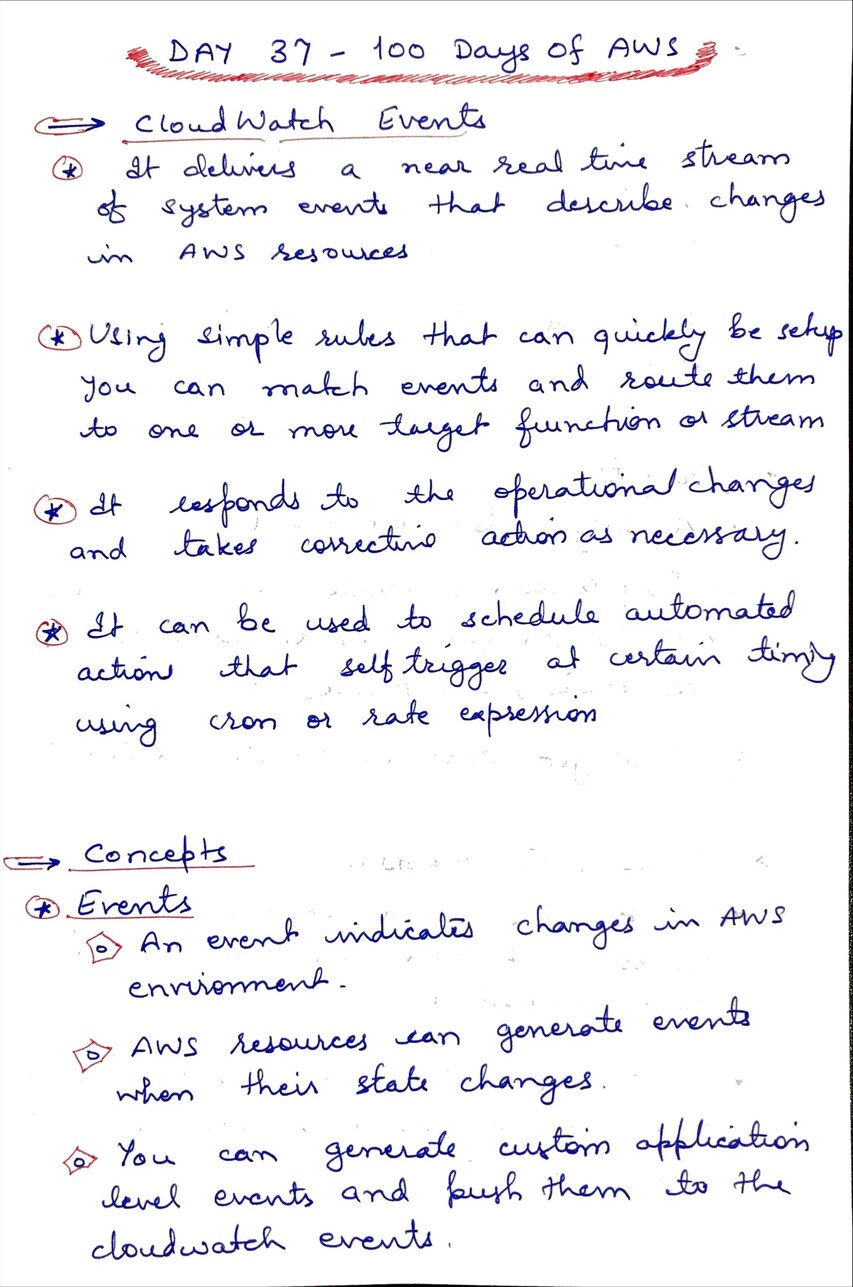 DAY 37 - 100 Days of AWS
CloudWatch Events
It delivers a near real time stream
of system events that describe changes
in AWS resources
Using simple rules that can quickly be setup
you can match events and route them
to one or more target function or stream
It responds to the operational changes
and takes corrective action as necessary.
It can be used to schedule automated
action that self trigger at certain timing
using cron or rate expression
Concepts
Events
An event indicates changes in AWS
environment.
AWS resources can generate events
when their state changes.
You can generate custom application
level events and push them to the
cloudwatch events.